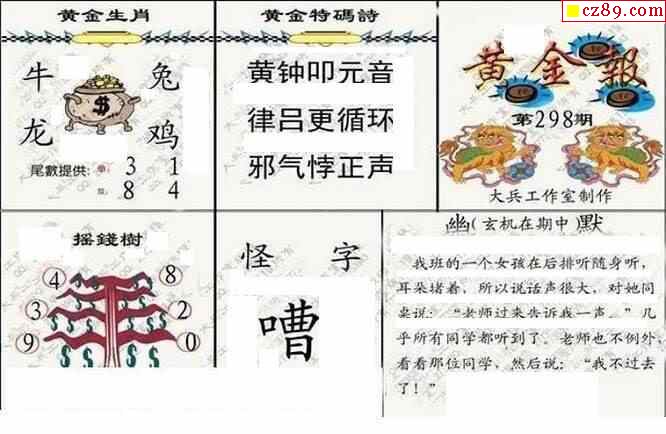 cz89.com
黄金生肖
牛 兔
龙 鸡
尾數提供: 3 1
8 4
黄金特碼詩
黄钟叩元音
律吕更循环
邪气悖正声
黄金報
第298期
大兵工作室制作
摇錢樹
4 8
3 2
9 0
怪 字
嘈
幽(玄机在期中)默
我班的一个女孩在后排听随身听，
耳朵堵着，所以说话声很大，对她同
桌说：“老师过来告诉我一声。”几
乎所有同学都听到了，老师也不例外，
看看那位同学，然后说：“我不过去
了！”